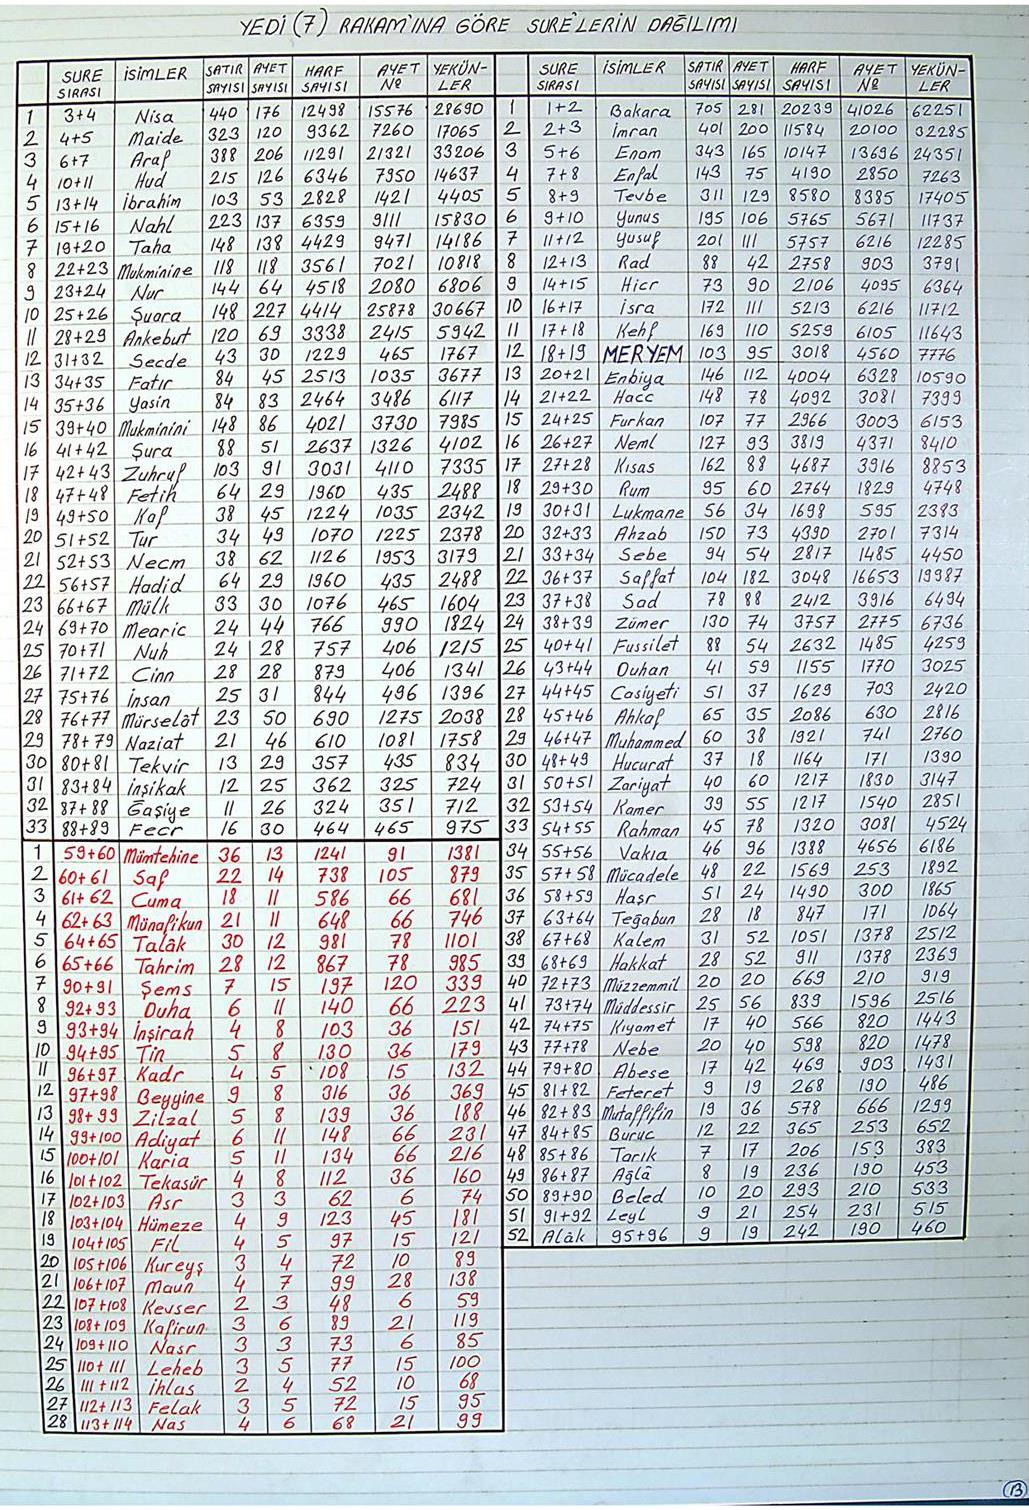 YEDİ (7) RAKAM'INA GÖRE SURE'LERİN DAĞILIMI
SURE SIRASI İSİMLER SATIR SAYISI AYET SAYISI HARF SAYISI AYET Nº YEKÜN-LER
1 3+4 Nisa 440 176 12498 15576 28690
2 4+5 Maide 323 120 9362 7260 17065
3 6+7 Araf 388 206 11291 21321 33206
4 10+11 Hud 215 126 6346 7950 14637
5 13+14 İbrahim 103 53 2828 1421 4405
6 15+16 Nahl 223 137 6359 9111 15830
7 19+20 Taha 148 138 4429 9471 14186
8 22+23 Mukminine 118 118 3561 7021 10818
9 23+24 Nur 144 64 4518 2080 6806
10 25+26 Şuara 148 227 4414 25878 30667
11 28+29 Ankebut 120 69 3338 2415 5942
12 31+32 Secde 43 30 1229 465 1767
13 34+35 Fatır 84 45 2513 1035 3677
14 35+36 Yasin 84 83 2464 3486 6117
15 39+40 Mukminini 148 86 4021 3730 7985
16 41+42 Şura 88 51 2637 1326 4102
17 42+43 Zuhruf 103 91 3031 4110 7335
18 47+48 Fetih 64 29 1960 435 2488
19 49+50 Kaf 38 45 1224 1035 2342
20 51+52 Tur 34 49 1070 1225 2378
21 52+53 Necm 38 62 1126 1953 3179
22 56+57 Hadid 64 29 1960 435 2488
23 66+67 Mülk 33 30 1076 465 1604
24 69+70 Mearic 24 44 766 990 1824
25 70+71 Nuh 24 28 757 406 1215
26 71+72 Cinn 28 28 879 406 1341
27 75+76 İnsan 25 31 844 496 1396
28 76+77 Mürselât 23 50 690 1275 2038
29 78+79 Naziat 21 46 610 1081 1758
30 80+81 Tekvir 13 29 357 435 834
31 83+84 İnşikak 12 25 362 325 724
32 87+88 Gaşiye 11 26 324 351 712
33 88+89 Fecr 16 30 464 465 975
1 59+60 Mümtehine 36 13 1241 91 1381
2 60+61 Saf 22 14 738 105 879
3 61+62 Cuma 18 11 586 66 681
4 62+63 Münafikun 21 11 648 66 746
5 64+65 Talâk 30 12 981 78 1101
6 65+66 Tahrim 28 12 867 78 985
7 90+91 Şems 7 15 197 120 339
8 92+93 Duha 6 11 140 66 223
9 93+94 İnşirah 4 8 103 36 151
10 94+95 Tin 5 8 130 36 179
11 96+97 Kadr 4 5 108 15 132
12 97+98 Beyyine 9 8 316 36 369
13 98+99 Zilzal 5 8 139 36 188
14 99+100 Adiyat 6 11 148 66 231
15 100+101 Karia 5 11 134 66 216
16 101+102 Tekasür 4 8 112 36 160
17 102+103 Asr 3 3 62 6 74
18 103+104 Hümeze 4 9 123 45 181
19 104+105 Fil 4 5 97 15 121
20 105+106 Kureyş 3 4 72 10 89
21 106+107 Maun 4 7 99 28 138
22 107+108 Kevser 2 3 48 6 59
23 108+109 Kafirun 3 6 89 21 119
24 109+110 Nasr 3 3 73 6 85
25 110+111 Leheb 3 5 77 15 100
26 111+112 İhlas 2 4 52 10 68
27 112+113 Felak 3 5 72 15 95
28 113+114 Nas 4 6 68 21 99
SURE SIRASI İSİMLER SATIR SAYISI AYET SAYISI HARF SAYISI AYET Nº YEKÜN-LER
1 1+2 Bakara 705 281 20239 41026 62251
2 2+3 İmran 401 200 11584 20100 32285
3 5+6 Enam 343 165 10147 13696 24351
4 7+8 Enfal 143 75 4190 2850 7263
5 8+9 Tevbe 311 129 8580 8385 17405
6 9+10 Yunus 195 106 5765 5671 11737
7 11+12 Yusuf 201 111 5757 6216 12285
8 12+13 Rad 88 42 2758 903 3791
9 14+15 Hicr 73 90 2106 4095 6364
10 16+17 İsra 172 111 5213 6216 11712
11 17+18 Kehf 169 110 5259 6105 11643
12 18+19 MERYEM 103 95 3018 4560 7776
13 20+21 Enbiya 146 112 4004 6328 10590
14 21+22 Hacc 148 78 4092 3081 7399
15 24+25 Furkan 107 77 2966 3003 6153
16 26+27 Neml 127 93 3819 4371 8410
17 27+28 Kısas 162 88 4687 3916 8853
18 29+30 Rum 95 60 2764 1829 4748
19 30+31 Lukmane 56 34 1698 595 2383
20 32+33 Ahzab 150 73 4390 2701 7314
21 33+34 Sebe 94 54 2817 1485 4450
22 36+37 Saffat 104 182 3048 16653 19987
23 37+38 Sad 78 88 2412 3916 6494
24 38+39 Zümer 130 74 3757 2775 6736
25 40+41 Fussilet 88 54 2632 1485 4259
26 43+44 Duhan 41 59 1155 1770 3025
27 44+45 Casiyeti 51 37 1629 703 2420
28 45+46 Ahkaf 65 35 2086 630 2816
29 46+47 Muhammed 60 38 1921 741 2760
30 48+49 Hucurat 37 18 1164 171 1390
31 50+51 Zariyat 40 60 1217 1830 3147
32 53+54 Kamer 39 55 1217 1540 2851
33 54+55 Rahman 45 78 1320 3081 4524
34 55+56 Vakıa 46 96 1388 4656 6186
35 57+58 Mücadele 48 22 1569 253 1892
36 58+59 Haşr 51 24 1490 300 1865
37 63+64 Teğabun 28 18 847 171 1064
38 67+68 Kalem 31 52 1051 1378 2512
39 68+69 Hakkat 28 52 911 1378 2369
40 72+73 Müzzemmil 20 20 669 210 919
41 73+74 Müddessir 25 56 839 1596 2516
42 74+75 Kıyamet 17 40 566 820 1443
43 77+78 Nebe 20 40 598 820 1478
44 79+80 Abese 17 42 469 903 1431
45 81+82 Feteret 9 19 268 190 486
46 82+83 Mutaffifin 19 36 578 666 1299
47 84+85 Buruc 12 22 365 253 652
48 85+86 Tarık 7 17 206 153 383
49 86+87 Ağlâ 8 19 236 190 453
50 89+90 Beled 10 20 293 210 533
51 91+92 Leyl 9 21 254 231 515
52 Alâk 95+96 9 19 242 190 460
13